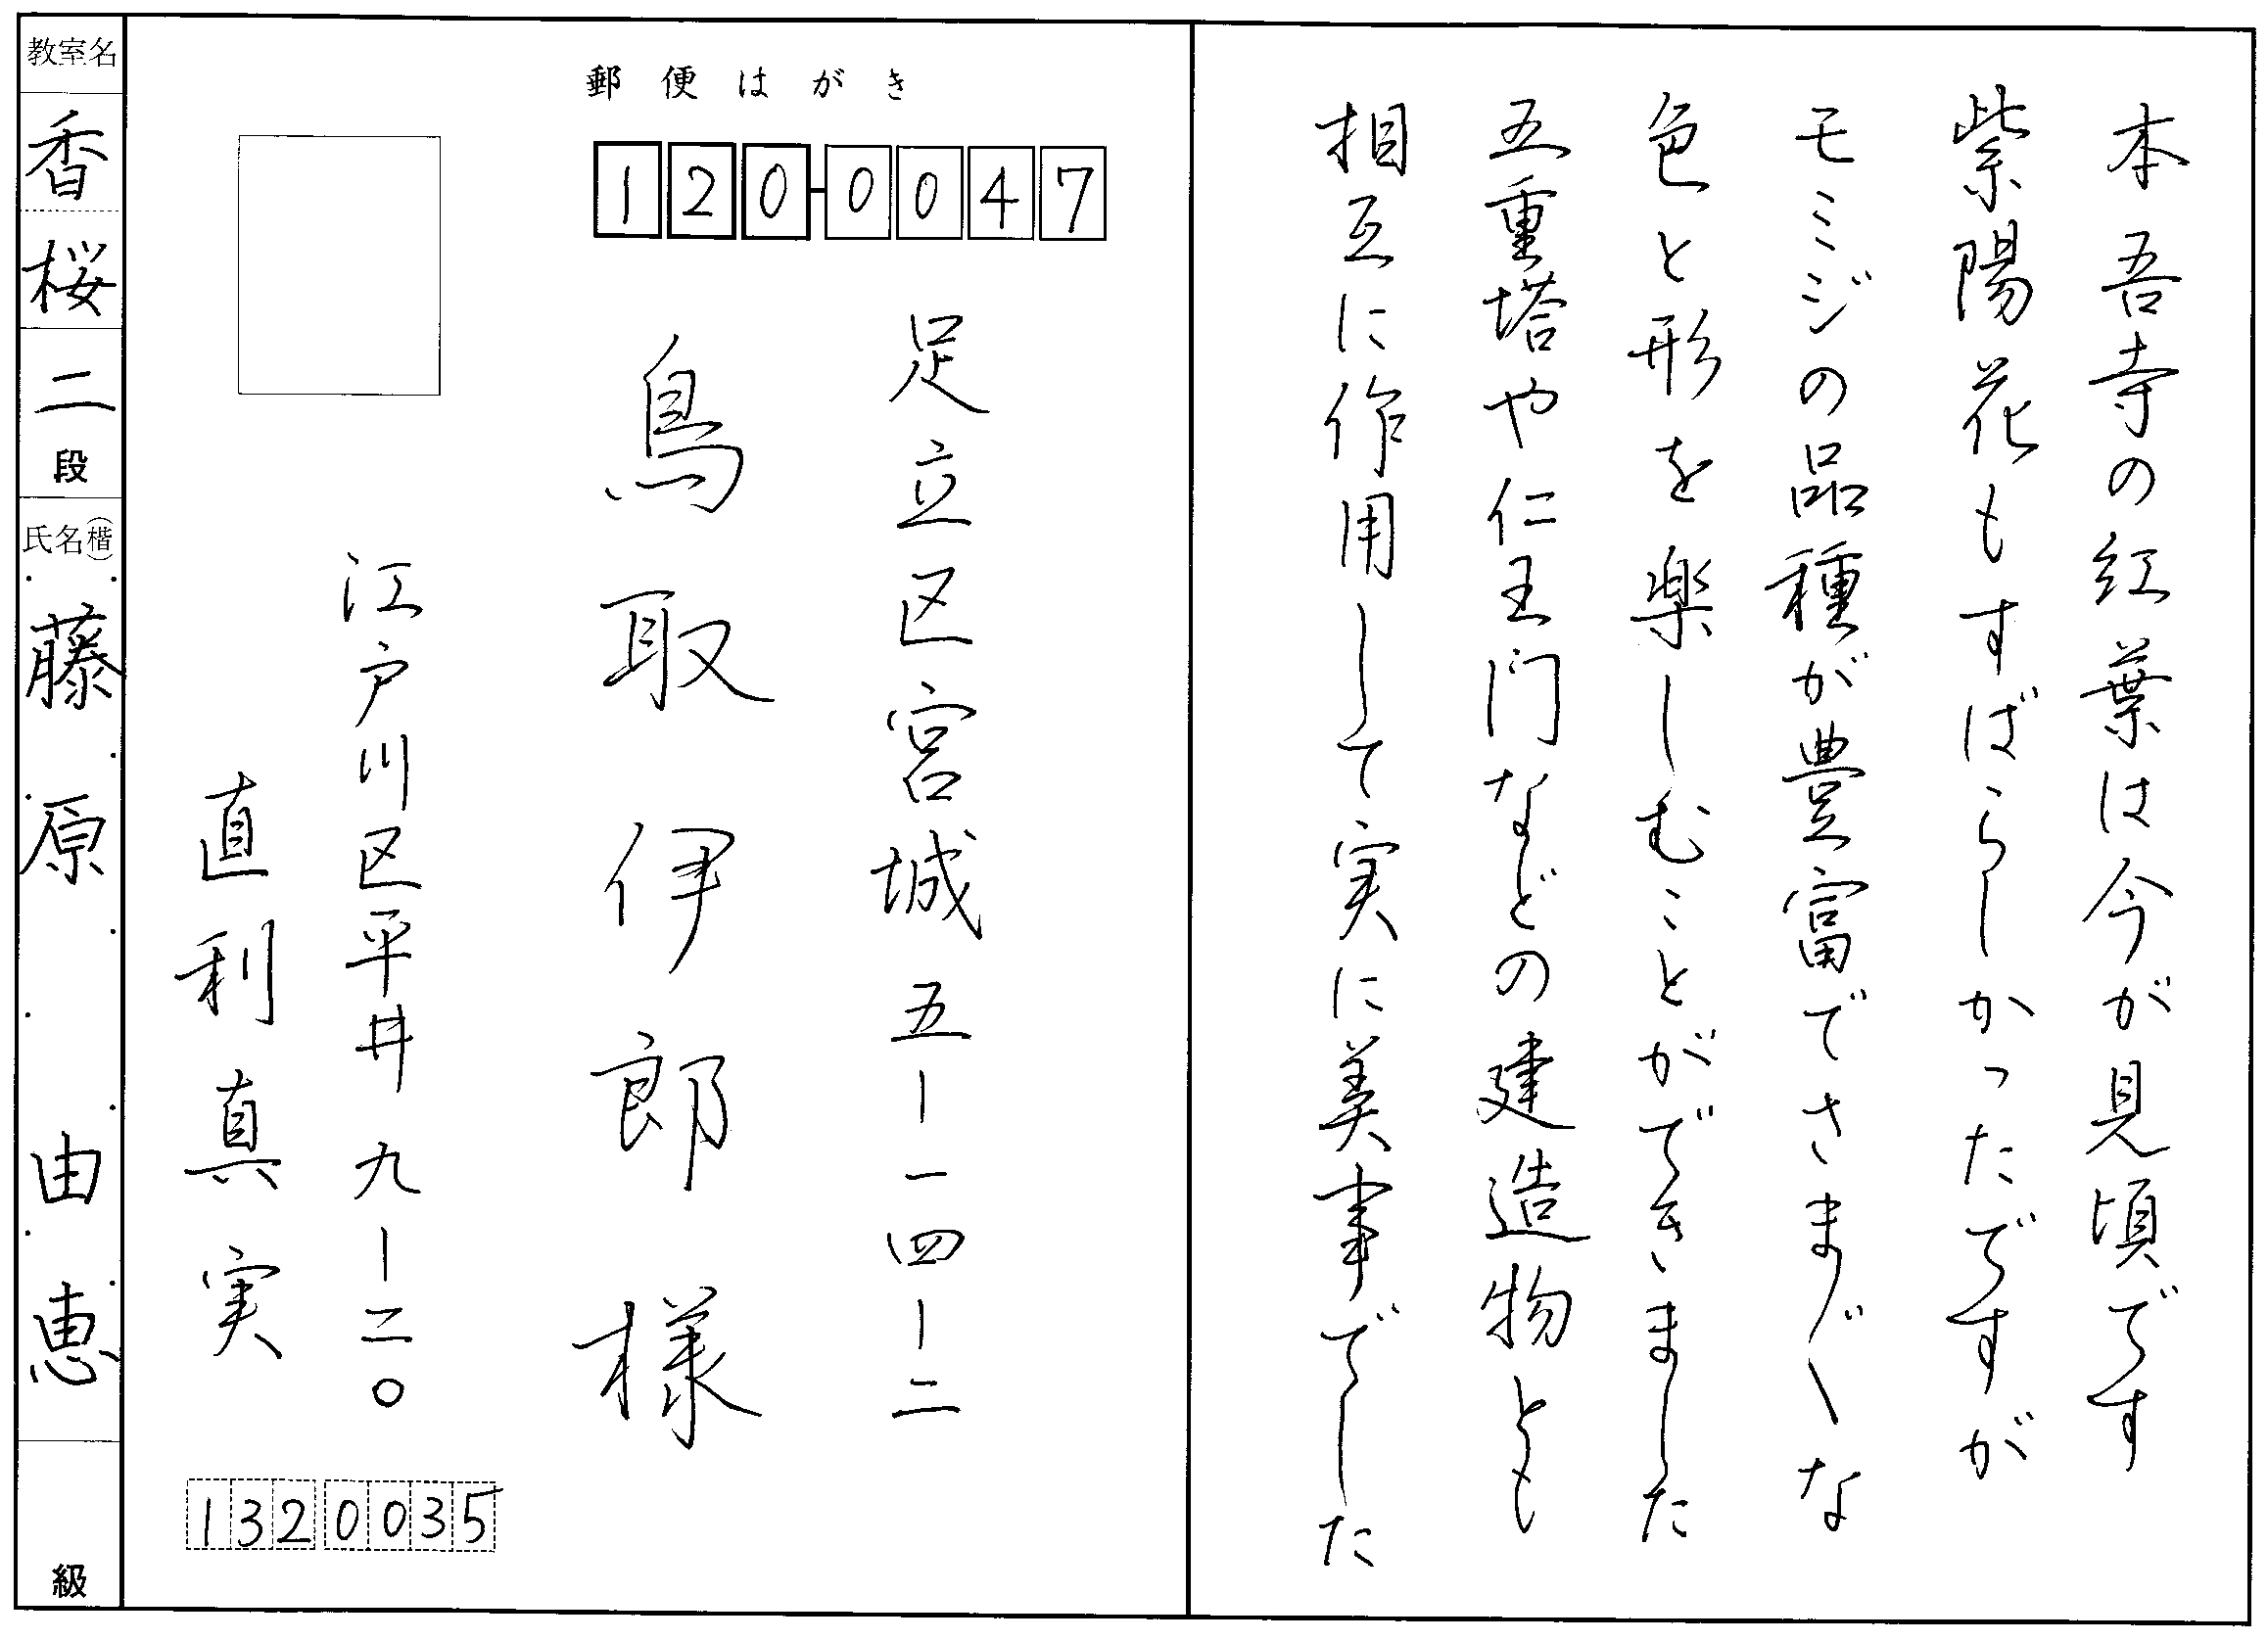 本吾寺の紅葉は今が見頃です
紫陽花もすばらしかったですが
モミジの品種が豊富でさまざ〳〵な
色と形を楽しむことができました
五重塔や仁王門などの建造物とも
相互に作用して実に美事でした
郵便はがき
120-0047
足立区宮城五ー一四ー二
鳥取伊郎様
江戸川区平井九ー二〇
直利真実
1320035
教室名
香桜
二段
氏名(楷)
藤原由恵
級